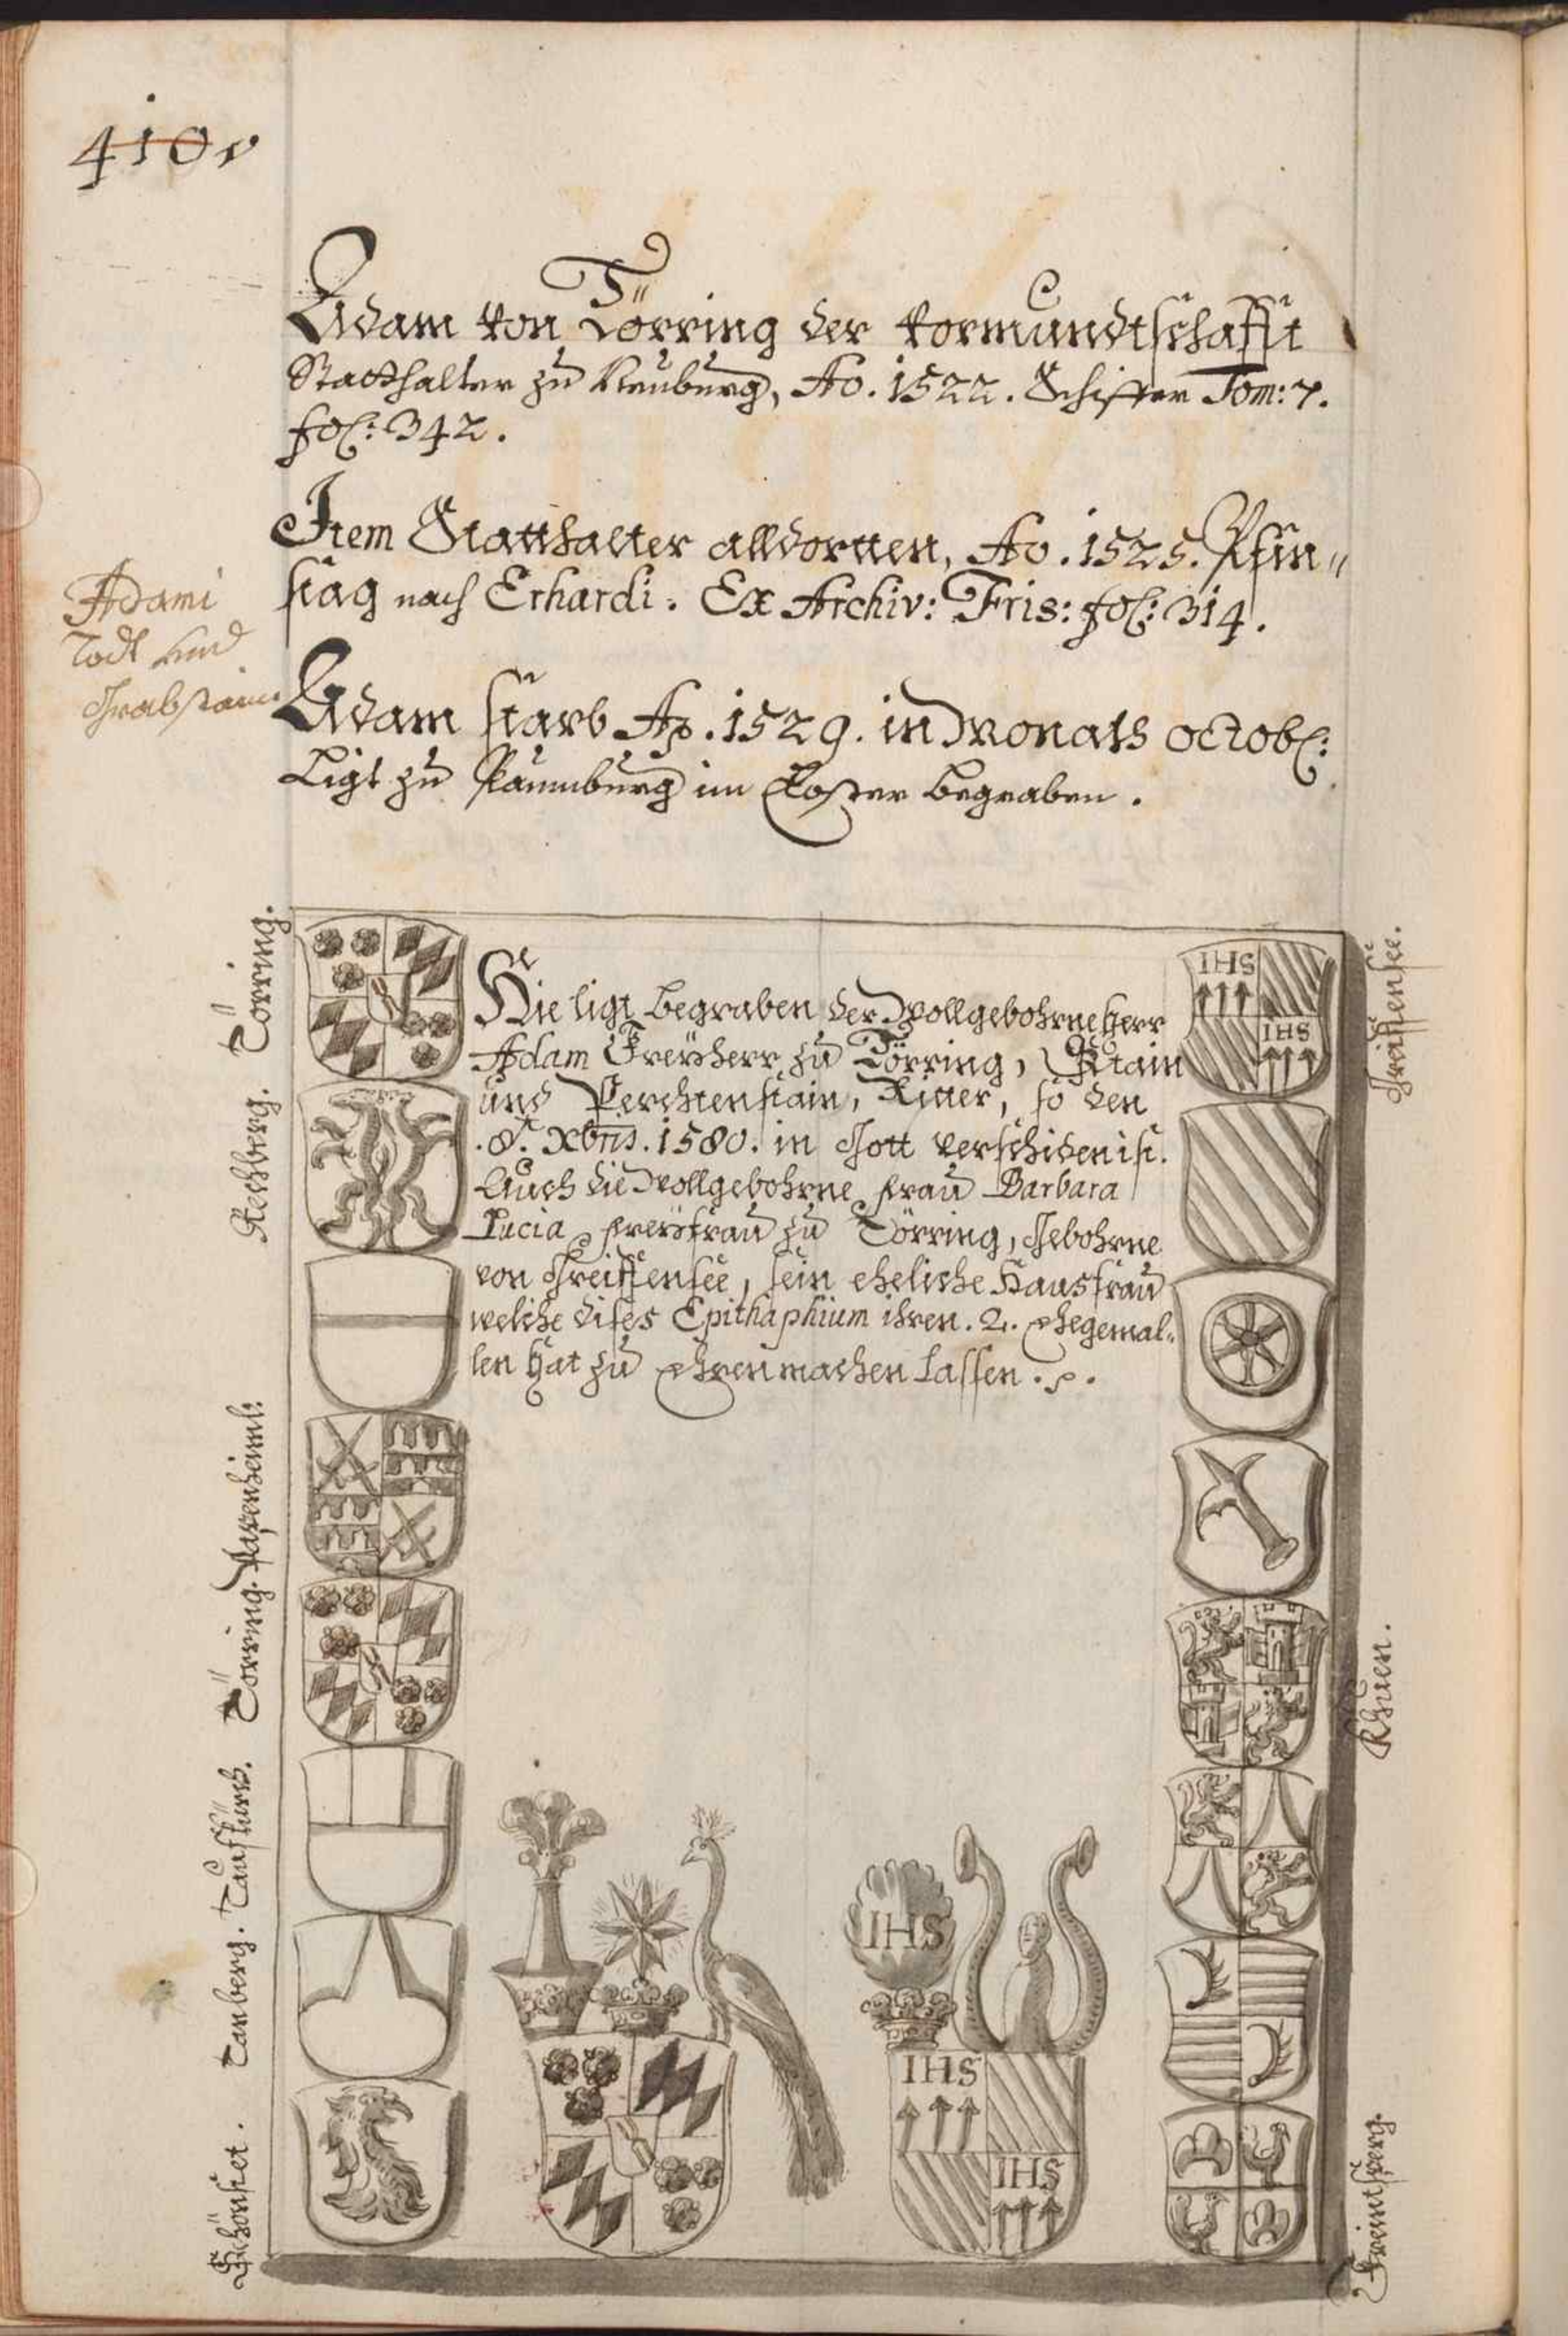 410v
Adam von Törring der vormundtschafft
Statthalter zu Neuburg, Ao. 1522. Schiffer Tom: 7.
fol: 342.
Item Statthalter alldortten, Ao. 1525. Pfin„
stag nach Erhardi. Ex Archiv: Fris: fol: 314.
Adami
Todt und
Grabstain.
Adam starb Ao. 1529. in Monats octob:
Ligt zu Paumburg im Closter begraben.
Törring.
Rechberg.
Törring. Papenheimb:
Tanberg.
Schönstet.
Hie ligt begraben der Wollgebohrne Herr
Adam Freÿherr zu Törring, Stain
und Perchtenstain, Ritter, so den
.8. Xbris. 1580. in Gott verschiden ist.
Auch die Wollgebohrne Frau Barbara
Lucia Freÿfrau zu Törring, Gebohrne
von Greiffensee, sein eheliche Hausfrau
welche dises Epithaphium ihren .2. Ehegemal„
len hat zu Ehren machen lassen.
IHS
IHS
IHS
IHS
IHS
Greiffensee.
Khuen.